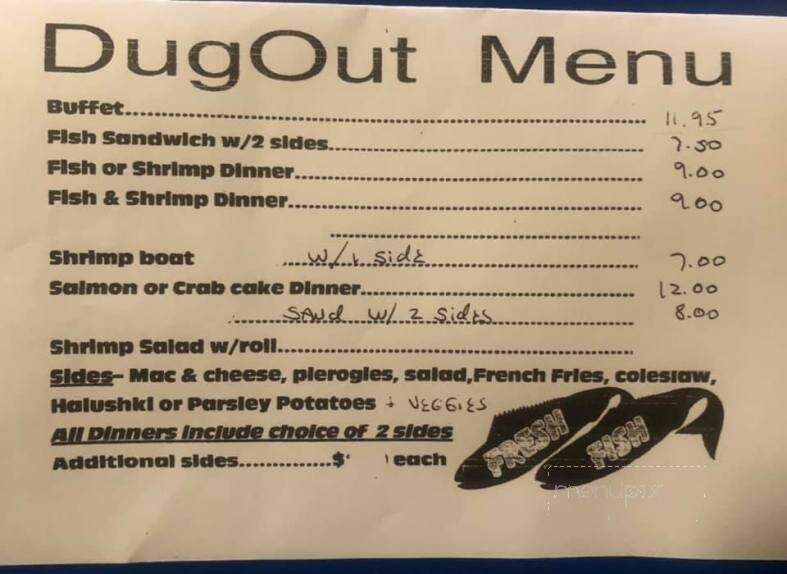 DugOut Menu
Buffet........................................ 11.95
Fish Sandwich w/2 sides........................................ 7.50
Fish or Shrimp Dinner........................................ 9.00
Fish & Shrimp Dinner........................................ 9.00
Shrimp boat w/1 side 7.00
Salmon or Crab cake Dinner........................................ 12.00
Sand w/ 2 sides 8.00
Shrimp Salad w/roll........................................
Sides- Mac & cheese, pierogies, salad,French Fries, coleslaw,
Halushki or Parsley Potatoes + VEGGIES
All Dinners include choice of 2 sides
Additional sides.............$ each
FRESH FISH
menupix